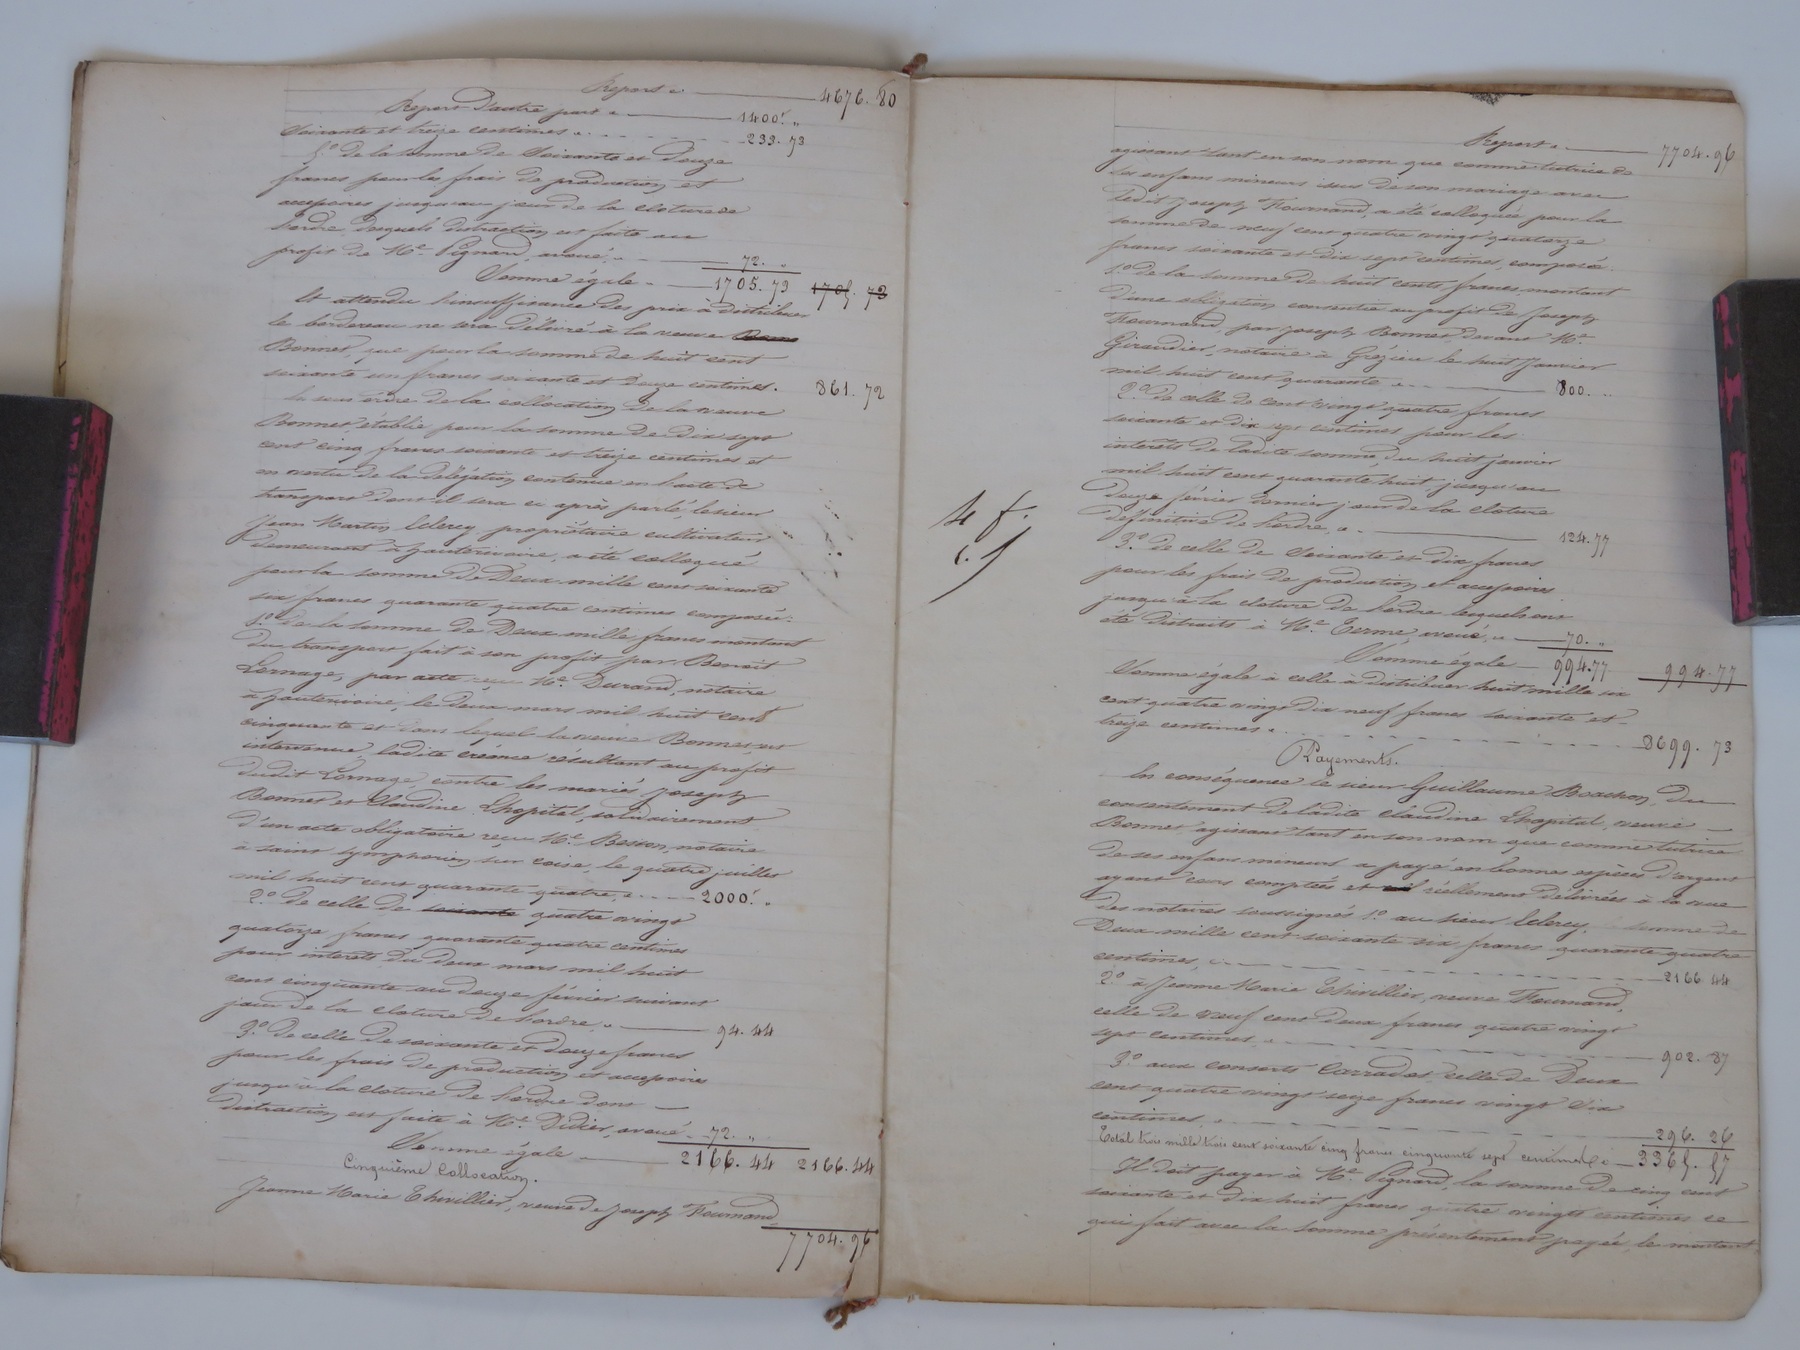 Report " 4676. 80
Report d'autre part " 1400f "
Soixante et treize centimes " 233. 73
5° de la somme de Soixante et Douze
francs pour les frais de production et
accessoires jusqu'au jour de la cloture de
l'ordre, desquels distraction est faite au
profit de Me Pignard, avoué, " 72. "
Somme égale " 1705. 73 1705. 73
Et attendu l'insuffisance des prix à distribuer
le bordereau ne sera délivré à la veuve
Bonnet, que pour la somme de huit cent
soixante un francs soixante et douze centimes. 861. 72
En sous ordre de la collocation de la veuve
Bonnet, établie pour la somme de dix sept
cent cinq francs soixante et treize centimes et
en vertu de la délégation contenue en l'acte de
transport dont il sera ci après parlé, le sieur
Jean Martin Clercy propriétaire cultivateur
demeurant à hauterivoire, a été colloqué
pour la somme de Deux mille cent soixante
six francs quarante quatre centimes composée.
1° de la somme de Deux mille francs montant
du transport fait à son profit par Benoit
Lornage, par acte reçu Me Durand, notaire
à hauterivoire, le deux mars mil huit cent
cinquante et dans lequel la veuve Bonnet est
intervenue ladite créance résultant au profit
dudit Lornage, contre les mariés Joseph
Bonnet et Claudine Lhopital, solidairement
d'un acte obligatoire reçu Me Besson, notaire
à saint symphorien sur coise, le quatre juillet
mil huit cent quarante quatre, " 2000f "
2° de celle de soixante quatre vingt
quatorze francs quarante quatre centimes
pour interets du deux mars mil huit
cent cinquante au douze février suivant
jour de la cloture de l'ordre, " 94. 44
3° de celle de soixante et douze francs
pour les frais de production et accessoires
jusqu'à la cloture de l'ordre dont
distraction est faite à Me Didier, avoué 72. "
Somme égale 2166. 44 2166. 44
Cinquième Collocation.
Jeanne Marie Thivillier, veuve de Joseph Flournand,
7704. 96
Report " 7704. 96
agissant tant en son nom que comme tutrice de
ses enfans mineurs issus de son mariage avec
ledit Joseph Flournand, a été colloquée pour la
somme de neuf cent quatre vingt quatorze
francs soixante et dix sept centimes, composée.
1° de la somme de huit cents francs, montant
d'une obligation consentie au profit de Joseph
Flournand, par Joseph Bonnet, devant Me
Giraudier, notaire à Grézieu le huit Janvier
mil huit cent quarante " 800. "
2° de celle de cent vingt quatre francs
soixante et dix sept centimes pour les
interets de ladite somme, du huit janvier
mil huit cent quarante huit, jusqu'au
douze février dernier jour de la cloture
définitive de l'ordre, " 124. 77
3° de celle de Soixante et dix francs
pour les frais de production et accessoires
jusqu'à la cloture de l'ordre lesquels ont
été distraits à Me Terme, avoué, " 70. "
Somme égale 994. 77 994. 77
Somme égale à celle à distribuer huit mille six
cent quatre vingt dix neuf francs soixante et
treize centimes " 8699. 73
Payements.
En conséquence le sieur Guillaume Bachon, du
consentement de ladite Claudine Lhopital, veuve
Bonnet agissant tant en son nom que comme tutrice
de ses enfans mineurs a payé en bonnes espèces d'argent
ayant cours comptées et réellement délivrées à la vue
des notaires soussignés 1° au sieur Clercy, somme de
Deux mille cent soixante six francs quarante quatre
centimes, " 2166 44
2° à Jeanne Marie Thivillier, veuve Flournand,
celle de neuf cent deux francs quatre vingt
sept centimes " 902. 87
3° aux consorts Carradot celle de Deux
cent quatre vingt seize francs vingt six
centimes, " 296. 26
Total trois mille trois cent soixante cinq francs cinquante sept centimes " 3365. 57
Il doit payer à Me Pignard, la somme de cinq cent
soixante et dix huit francs quatre vingts centimes ce
qui fait avec la somme présentement payée, le montant